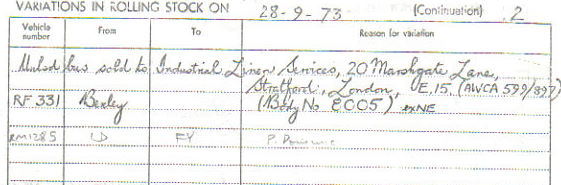 VARIATIONS IN ROLLING STOCK ON 28-9-73 (Continuation) 2
Vehicle number From To Reason for variation
bus sold to Industrial Linen Services, 20 Marshgate Lane,
Stratford, London, E.15 (AWCA 599/897)
RF 331 Bexley (Body No 8005) ex NE
RM1285 FY P.